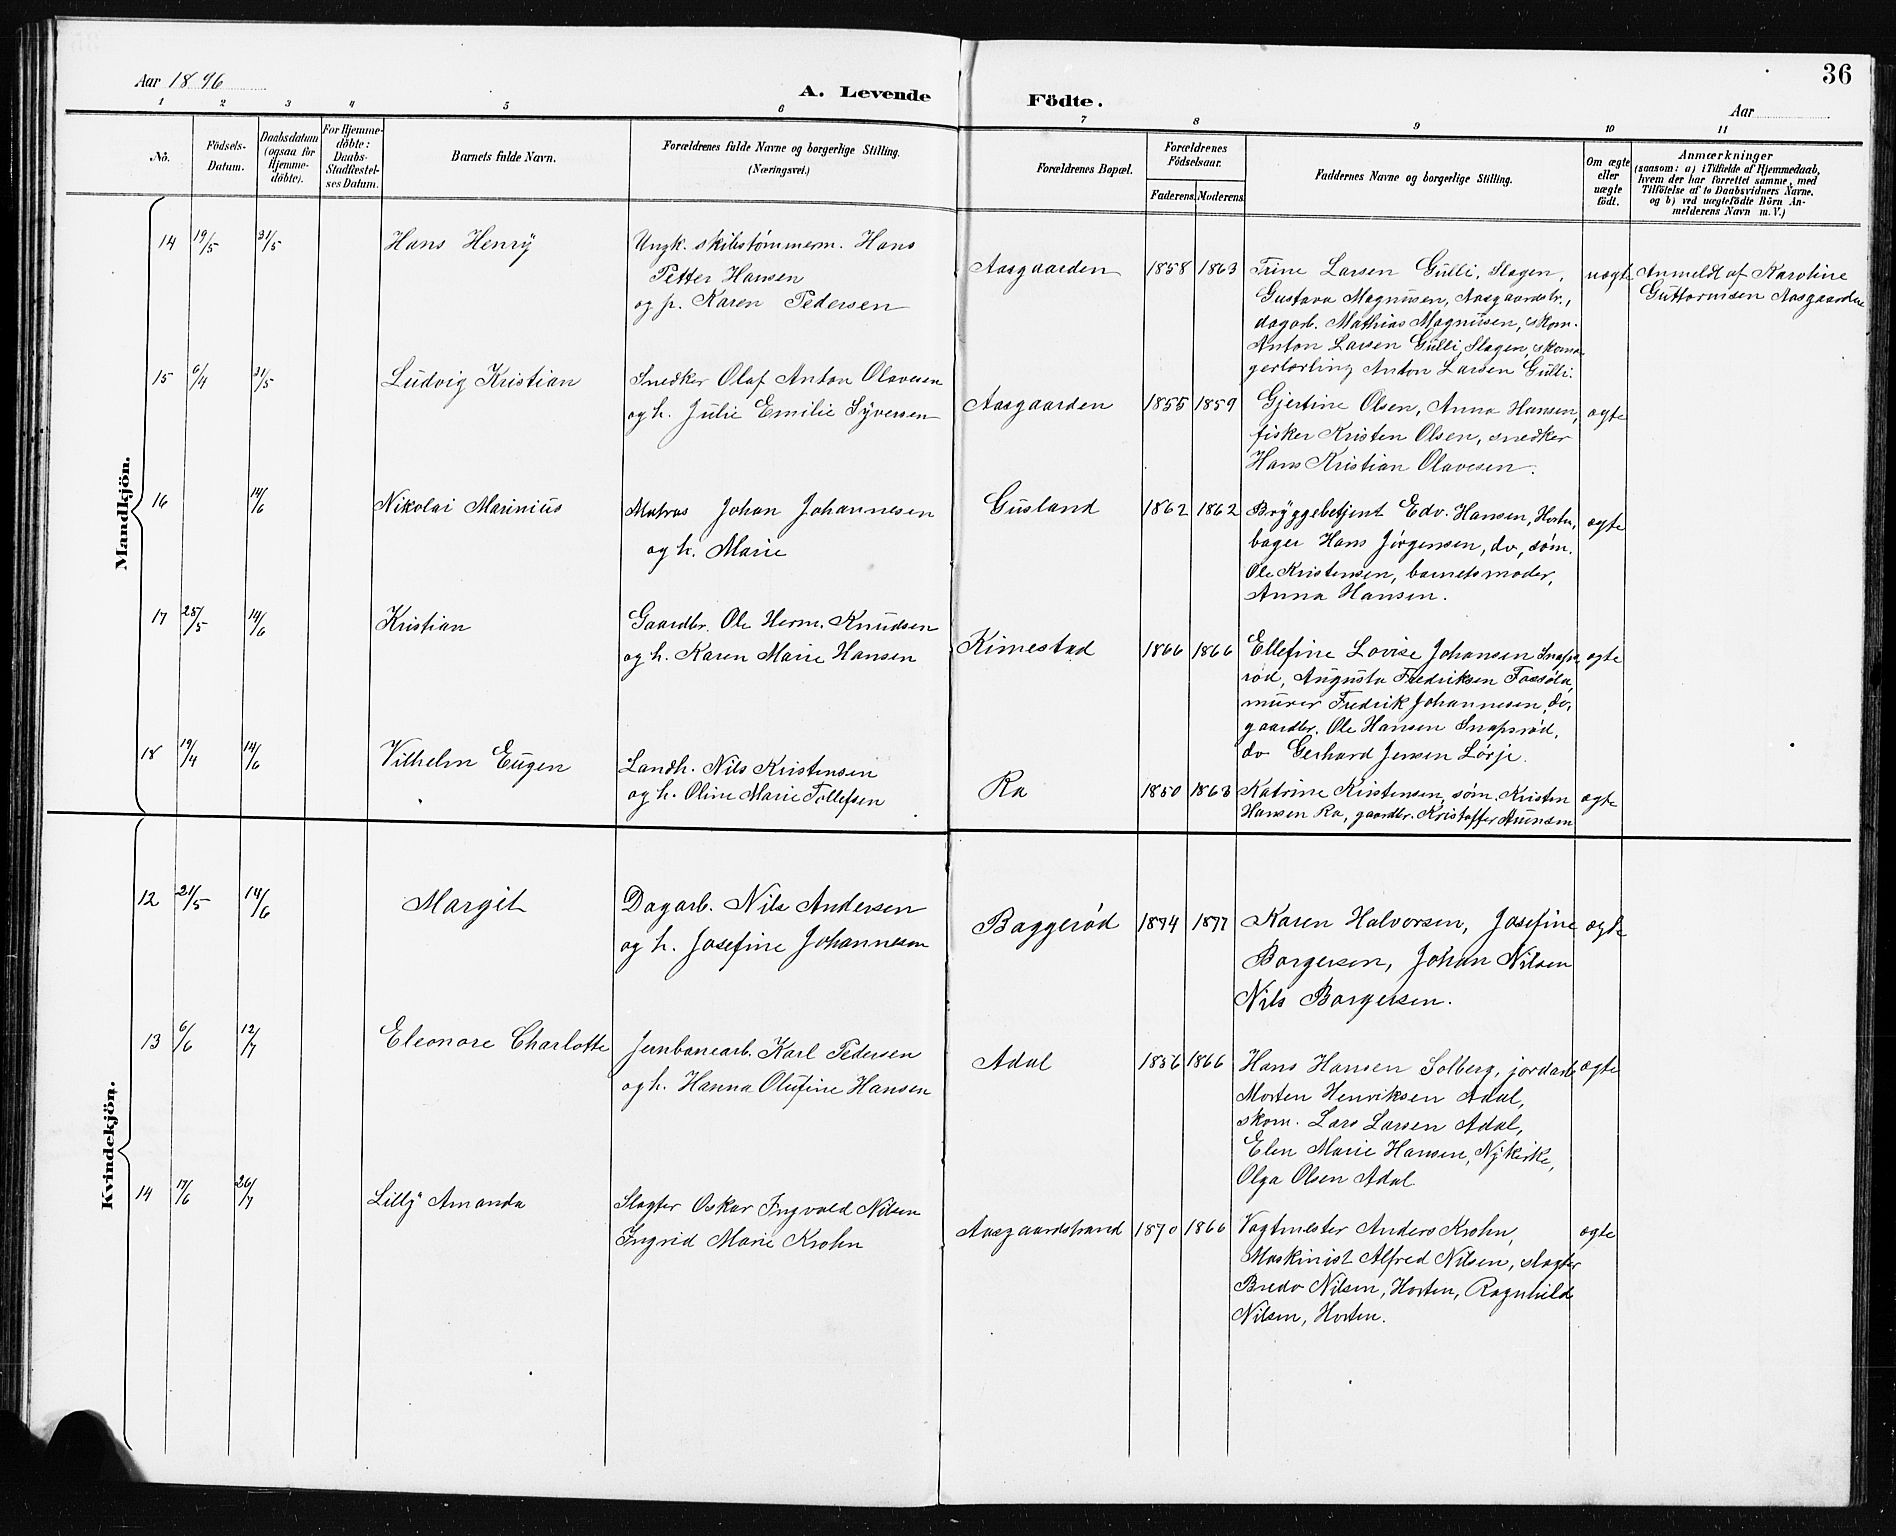 36
Aar 1896
A. Levende Födte.
Aar
1 2 3 4 5 6 7 8 9 10 11
No.
Födsels-Datum.
Daabsdatum (ogsaa for Hjemme-döbte).
For Hjemme-döbte: Daabs-Stadfæstel-ses Datum.
Barnets fulde Navn.
Forældrenes fulde Navne og borgerlige Stilling. (Næringsvei.)
Forældrenes Bopæl.
Forældrenes Födselsaar.
Faderens. Moderens.
Faddernes Navne og borgerlige Stilling.
Om ægte eller uægte födt.
Anmærkninger
(saasom: a) i Tilfælde af Hjemmedaab,
hvem der har forrettet samme, med
Tilföielse af to Daabsvidners Navne.
og b) ved uægtefödte Börn An-
melderens Navn m. V.)
Mandkjön.
14 19/5 31/5 Hans Henrÿ
Ungk. skibstømmerm. Hans
Petter Hansen
og p. Karen Pedersen
Aasgaarden 1858 1863
Trine Larsen Gulli, Slagen,
Gustava Magnusen, Aasgaardstr.,
dagarb. Mathias Magnusen, skom.
Anton Larsen Gulli, Slagen, skoma-
gerlærling Anton Larsen Gulli.
uægte
Anmeldt af Karoline
Guttormsen Aasgaarden
15 6/4 31/5 Ludvig Kristian
Snedker Olaf Anton Olavesen
og h. Julie Emilie Syversen
Aasgaarden 1855 1859
Gjertine Olsen, Anna Hansen,
fisker Kristen Olsen, snedker
Hans Kristian Olavesen.
ægte
16 14/6 Nikolai Marinius
Matros Johan Johannesen
og h. Marie
Gusland 1862 1862
Brÿggebetjent Edv. Hansen, Horten,
bager Hans Jørgensen, do, søm.
Ole Kristensen, barnets moder,
Anna Hansen.
ægte
17 25/5 14/6 Kristian
Gaardbr. Ole Herm. Knudsen
og h. Karen Marie Hansen
Kimestad 1866 1866
Ellefine Lovise Johansen Snaps-
rød, Augusta Fredriksen
murer Fredrik Johannesen, do,
gaardbr. Ole Hansen Snapsrød,
do Gerhard Jensen Lørje.
ægte
18 19/4 14/6 Vilhelm Eugen
Landh. Nils Kristensen
og h. Oline Marie Tollefsen
Ra 1850 1863
Katrine Kristensen, søm. Kristen
Hansen Ra, gaardbr. Kristoffer
ægte
Kvindekjön.
12 21/5 14/6 Margit
Dagarb. Nils Andersen
og h. Josefine Johannesen
Baggerød 1874 1877
Karen Halvorsen, Josefine
Borgersen, Johan Nilsen
Nils Borgersen.
ægte
13 6/6 12/7 Eleonore Charlotte
Jernbanearb. Karl Pedersen
og h. Hanna Olufine Hansen
Adal 1856 1866
Hans Hansen Solberg, jordarb.
Morten Henriksen Adal,
skom. Lars Larsen Adal,
Elen Marie Hansen, Nykirke,
Olga Olsen Adal.
ægte
14 17/6 26/7 Lillÿ Amanda
Slagter Oskar Ingvald Nilsen
Ingrid Marie Krohn
Aasgaardstrand 1870 1866
Vagtmester Anders Krohn,
Maskinist Alfred Nilsen, slagter
Bredo Nilsen, Horten, Ragnhild
Nilsen, Horten.
ægte